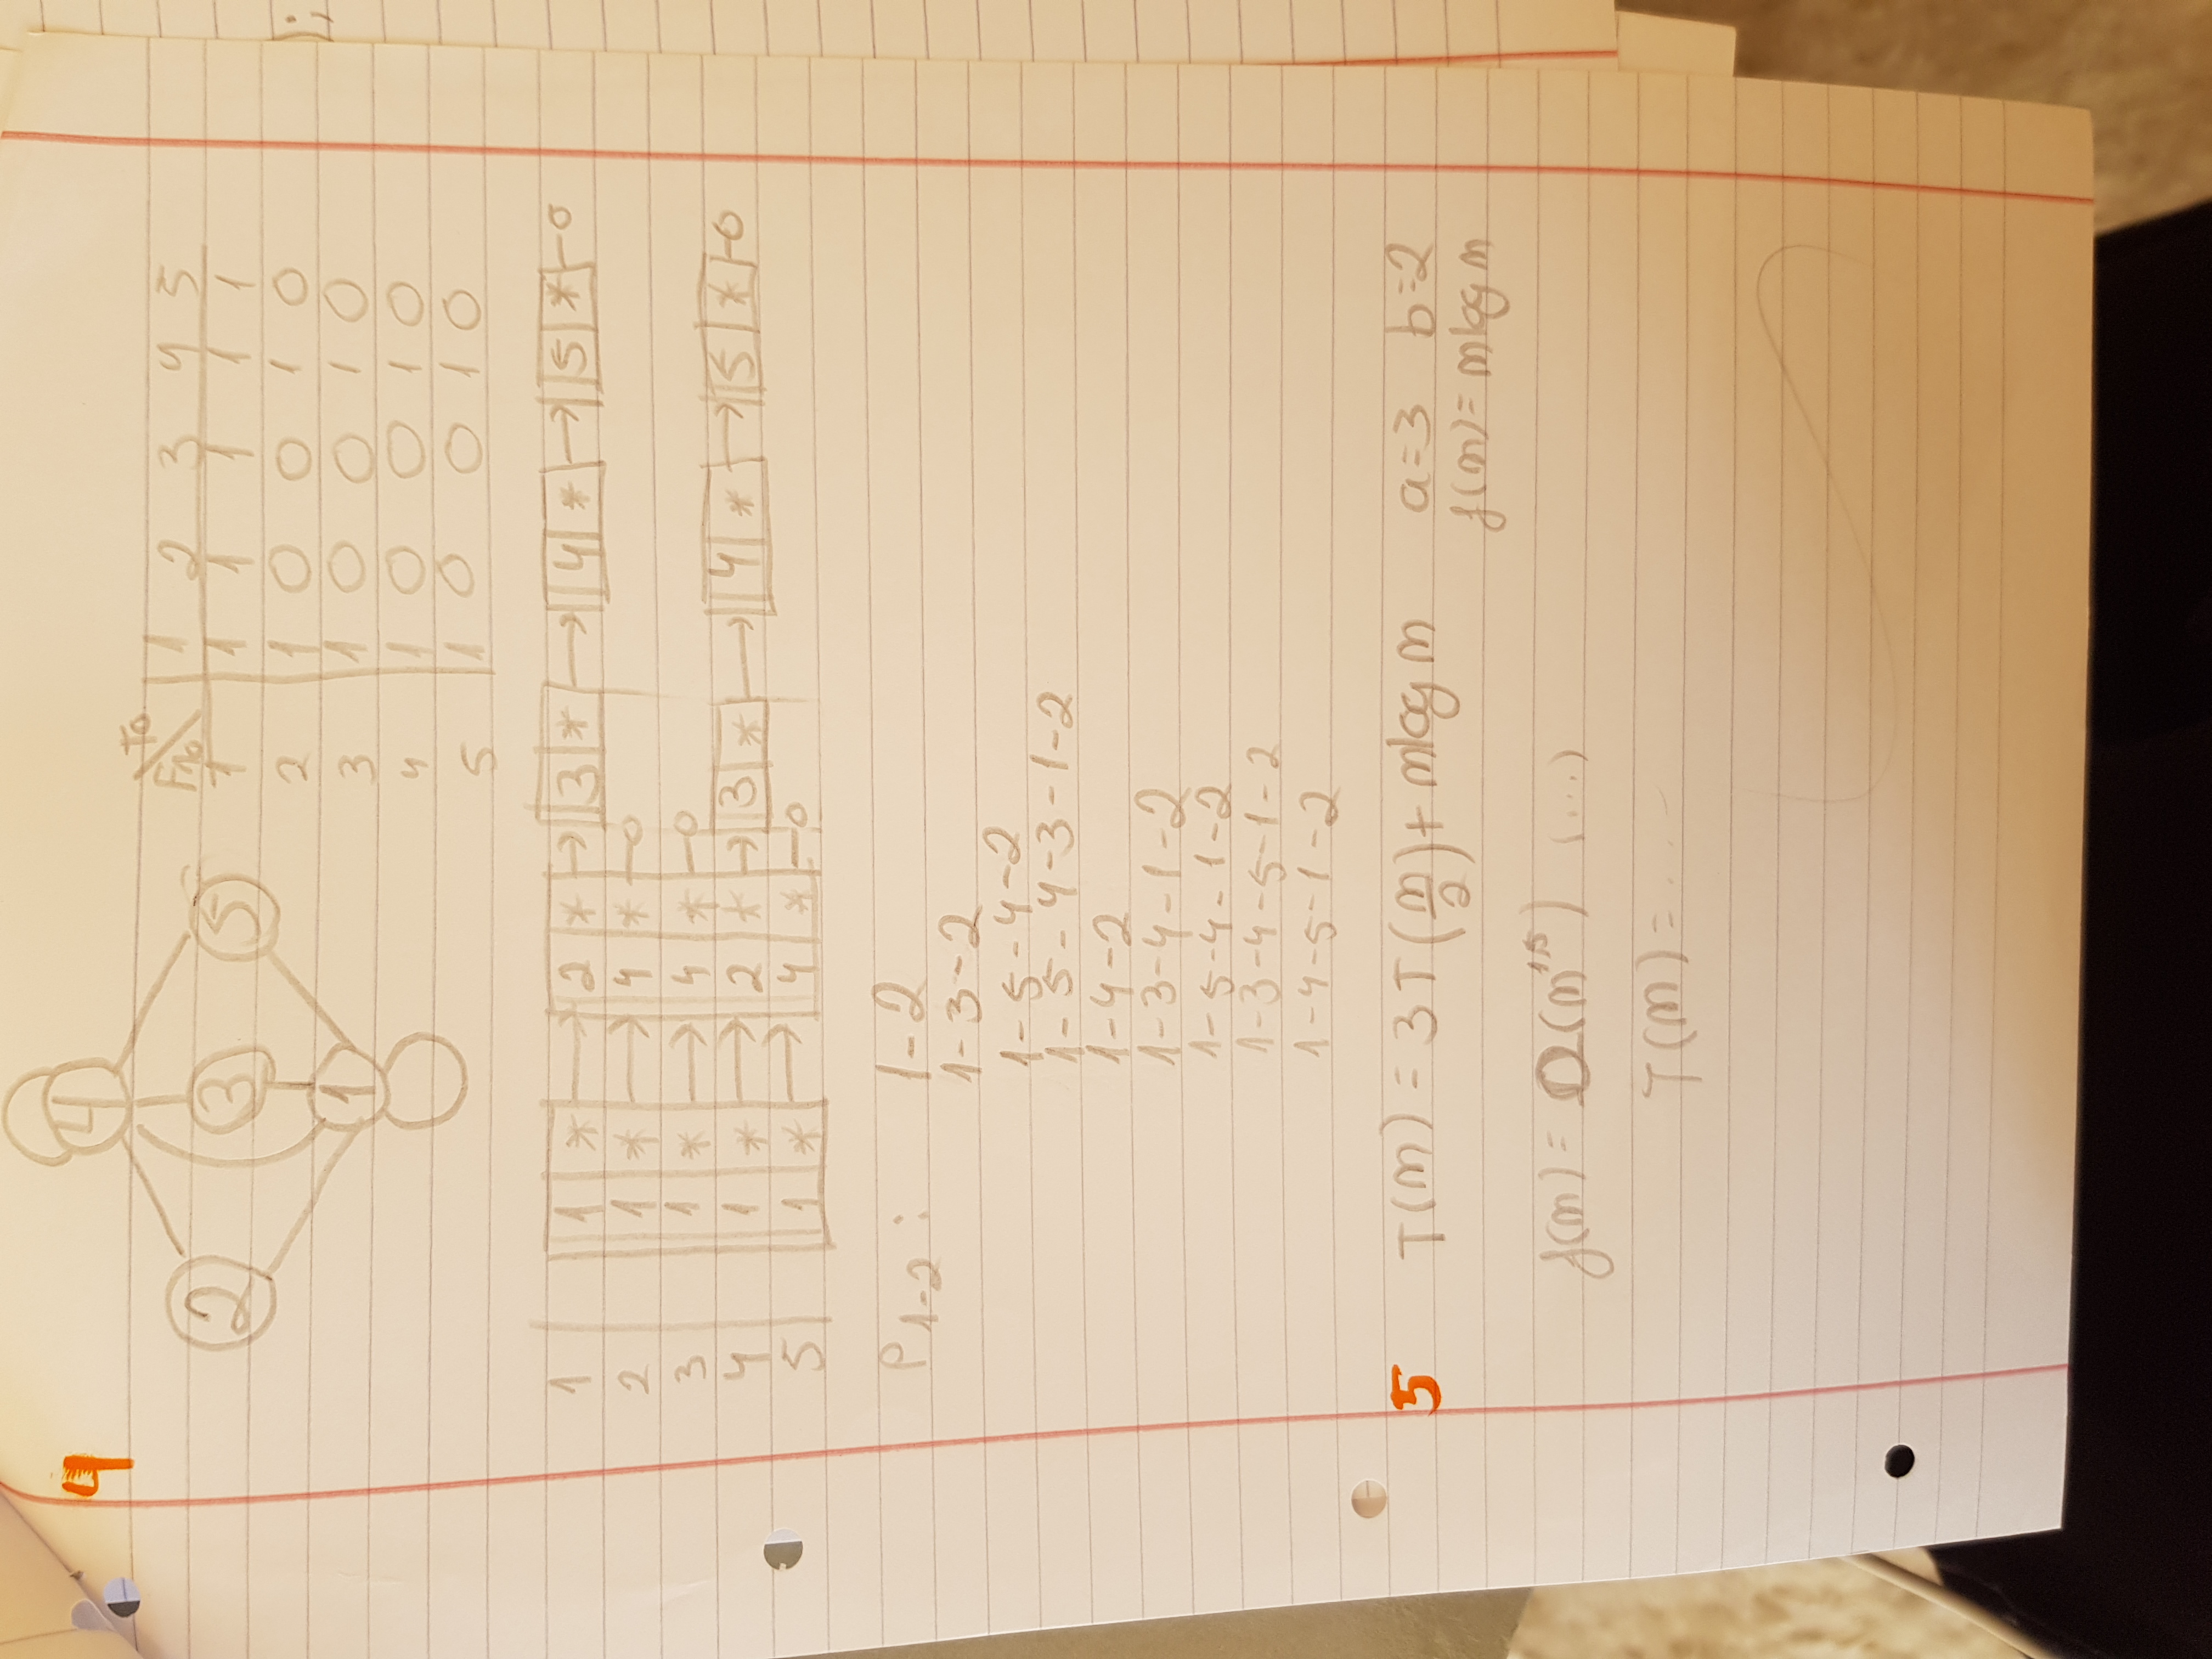 4
4
2 3 5
1
From\To 1 2 3 4 5
1 1 1 1 1 1
2 1 0 0 1 0
3 1 0 0 1 0
4 1 0 0 1 0
5 1 0 0 1 0
1 | 1 * → 2 * → 3 * → 4 * → 5 * -o
2 | 1 * → 4 * -o
3 | 1 * → 4 * -o
4 | 1 * → 2 * → 3 * → 4 * → 5 * -o
5 | 1 * → 4 * -o
P1-2 : 1-2
1-3-2
1-5-4-2
1-5-4-3-1-2
1-4-2
1-3-4-1-2
1-5-4-1-2
1-3-4-5-1-2
1-4-5-1-2
5 T(m) = 3T(m/2) + mlog m a=3 b=2
f(m) = mlog m
f(m) = Ω(m^1,5) (...)
T(m) = ....